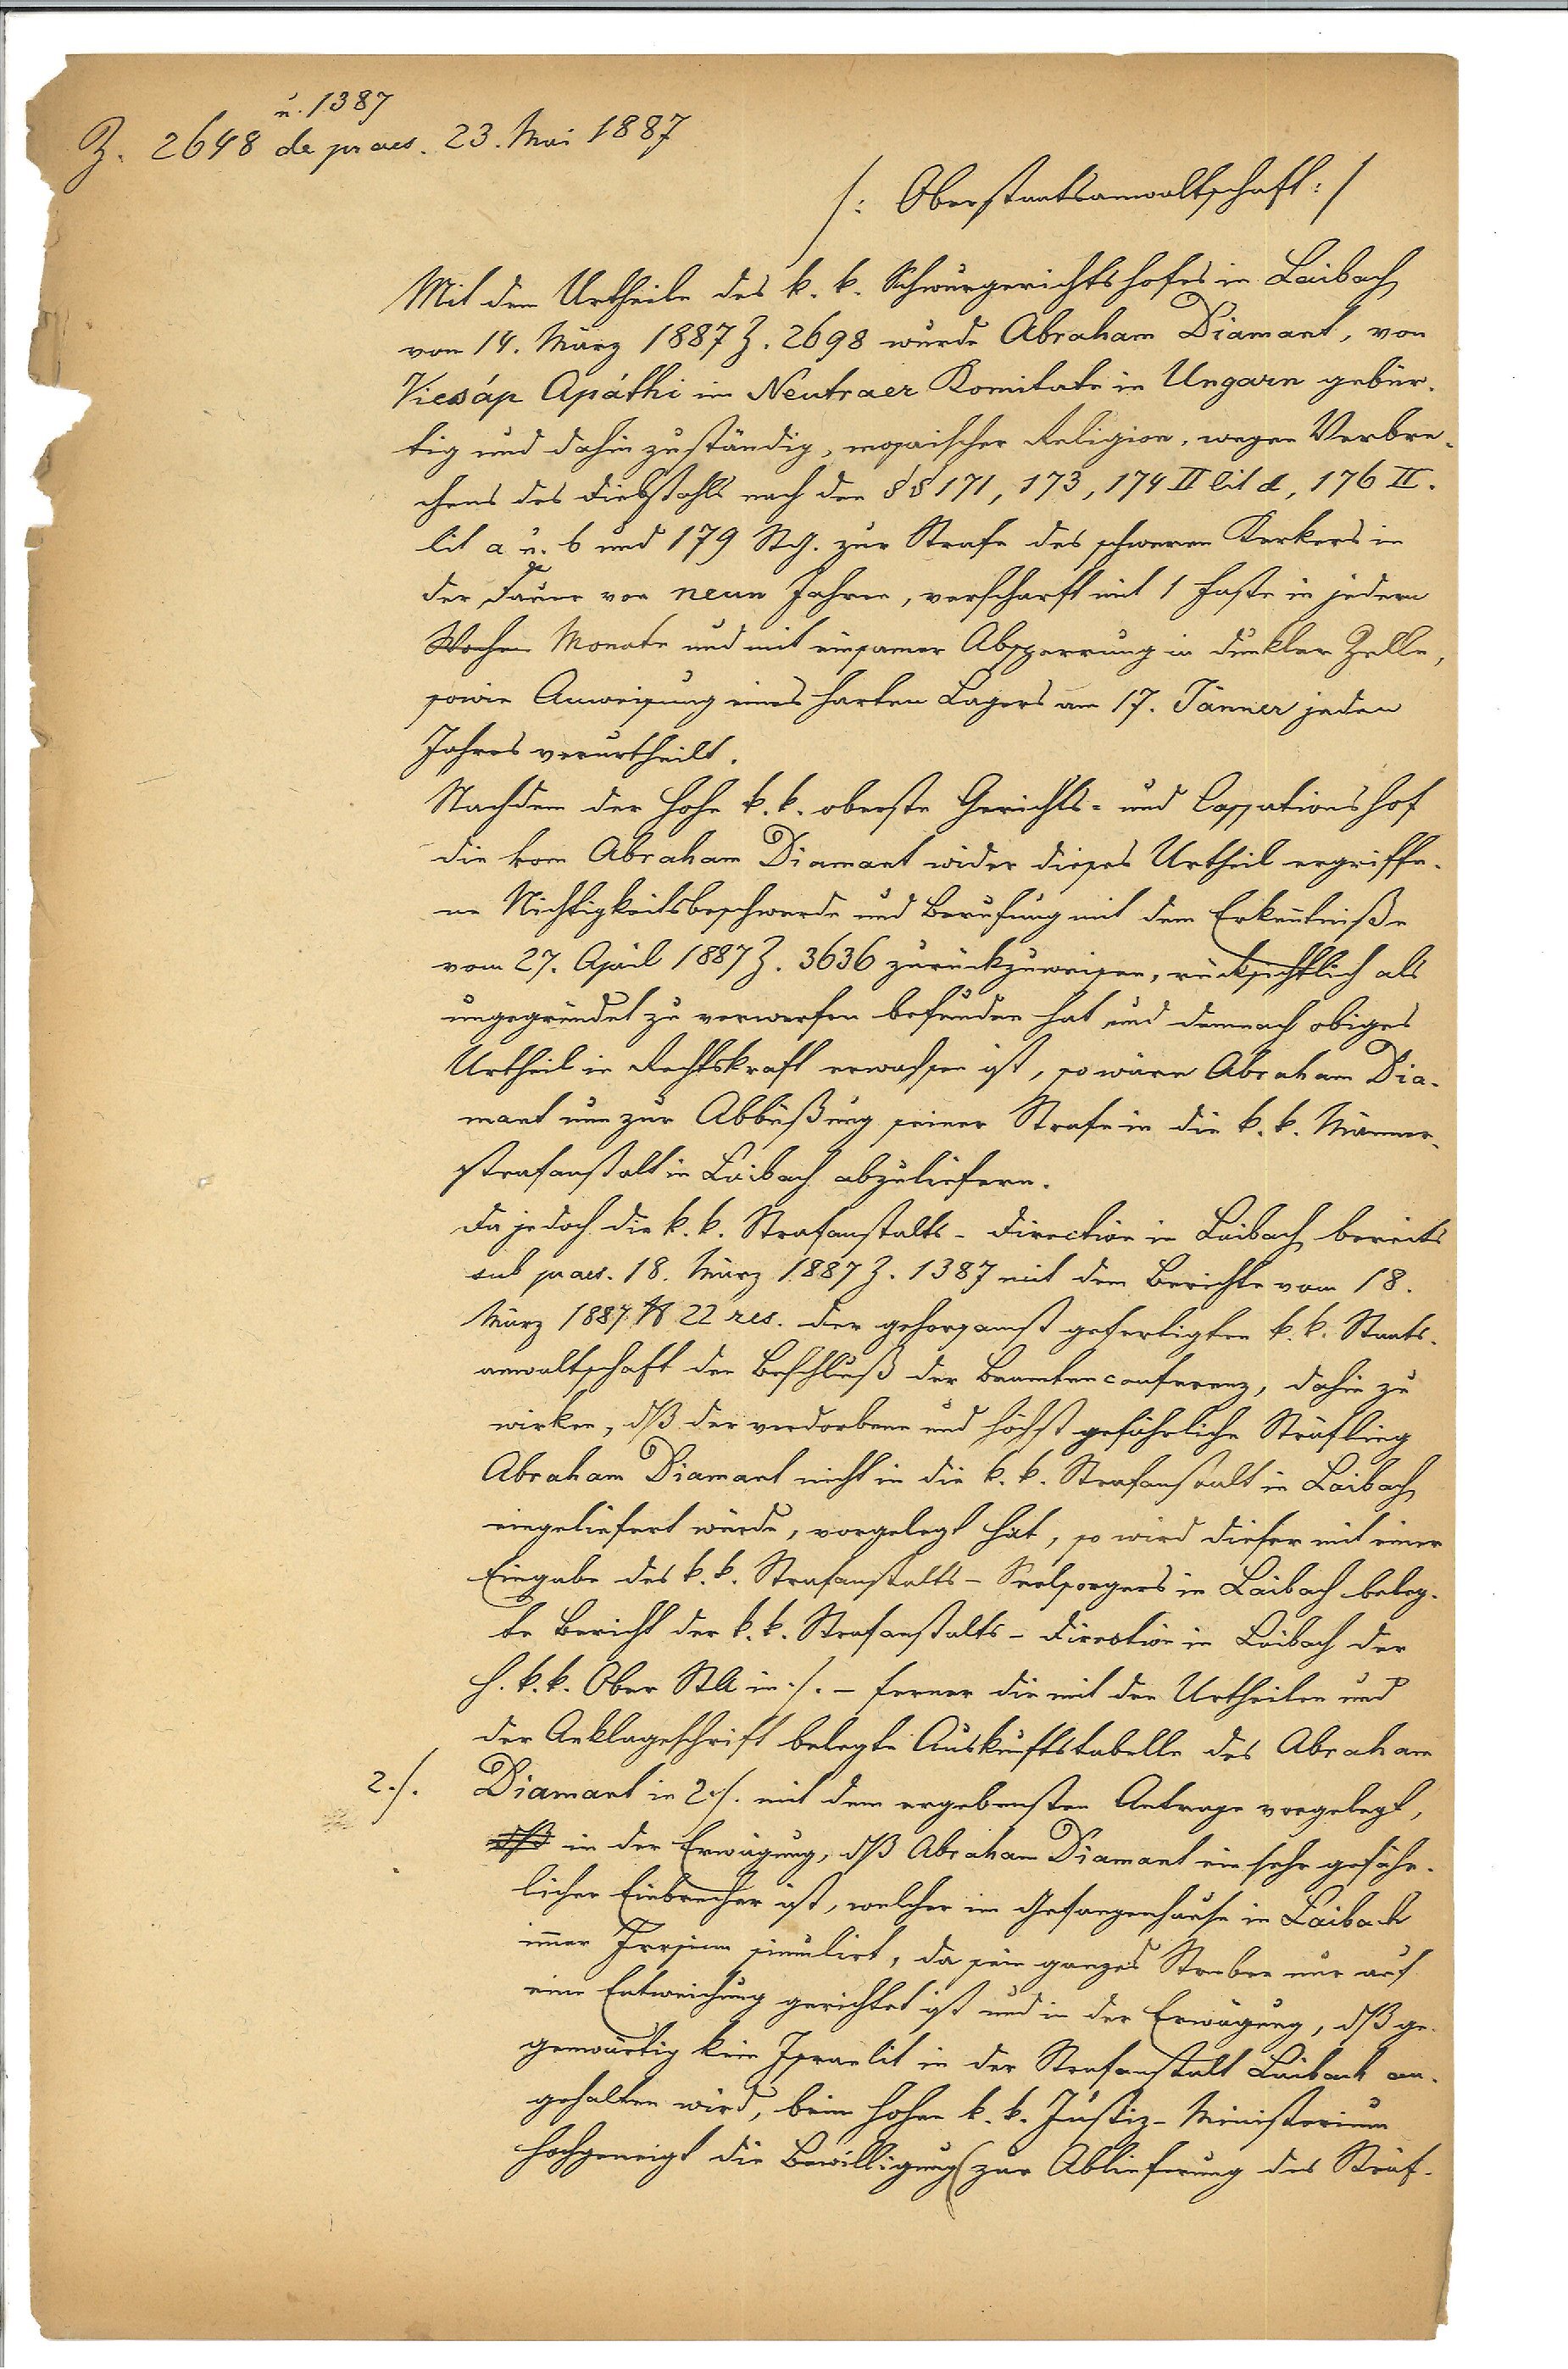 u. 1387
Z. 2648 de praes. 23. Mai 1887
/: Oberstaatsanwaltschaft :/
Mit dem Urtheile des k. k. Schwurgerichtshofes in Laibach
vom 14. März 1887 Z. 2698 wurde Abraham Diamant, von
Viesáp Apáthi im Neutraer Komitate in Ungarn gebür-
tig und dahin zuständig, mosaischer Religion, wegen Verbre-
chens des Diebstahls nach den §§ 171, 173, 174 II lit d, 176 II.
lit a u. b und 179 StG. zur Strafe des schweren Kerkers in
der Dauer von neun Jahren, verschärft mit 1 Faste in jedem
Wochen Monate und mit einsamer Absperrung in dunkler Zelle,
sowie Anweisung eines harten Lagers am 17. Jänner jeden
Jahres verurtheilt.
Nachdem der hohe k. k. oberste Gerichts- und Cassationshof
die vom Abraham Diamant wider dieses Urtheil ergriffe-
ne Nichtigkeitsbeschwerde und Berufung mit dem Erkenntniße
vom 27. April 1887 Z. 3636 zurückzuweisen, rücksichtlich als
ungegründet zu verwerfen befunden hat und demnach obiges
Urtheil in Rechtskraft erwachsen ist, so wäre Abraham Dia-
mant nun zur Abbüßung seiner Strafe in die k. k. Männer-
strafanstalt in Laibach abzuliefern.
Da jedoch die k. k. Strafanstalts-Direction in Laibach bereits
sub praes. 18. März 1887 Z. 1387 mit dem Berichte vom 18.
März 1887 № 22 res. der gehorsamst gefertigten k. k. Staats-
anwaltschaft den Beschluß der Beamtenconferenz, dahin zu
wirken, dß der verdorbene und höchst gefährliche Sträfling
Abraham Diamant nicht in die k. k. Strafanstalt in Laibach
eingeliefert würde, vorgelegt hat, so wird dieser mit einer
Eingabe des k. k. Strafanstalts-Seelsorgers in Laibach beleg-
te Bericht der k. k. Strafanstalts-Direction in Laibach der
h. k. k. Ober StA in ./. – ferner die mit den Urtheilen und
der Anklageschrift belegte Auskunftstabelle des Abraham
2./. Diamant in 2./. mit dem ergebensten Antrage vorgelegt,
dß in der Erwägung, dß Abraham Diamant ein sehr gefähr-
licher Einbrecher ist, welcher im Gefangenhause in Laibach
immer Irrsinn simulirt, da sein ganzes Streben nur auf
eine Entweichung gerichtet ist und in der Erwägung, dß ge-
genwärtig kein Israelit in der Strafanstalt Laibach an-
gehalten wird, beim hohen k. k. Justiz-Ministerium
hochgeneigt die Bewilligung (zur Ablieferung des Sträf-